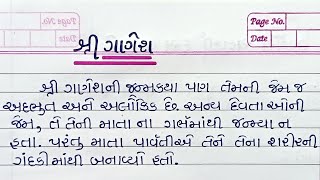 Page No.
Date
Page No.
Date
શ્રી ગાગેશ
શ્રી ગાગેશની જન્મકથા પાગ તેમની જેમ જ
અદભુત અને અલૌકિક છે. અન્ય દેવતાઓની
જેમ, તે તેની માતા ના ગર્ભમાંથી જન્મ્યા ન
હતા. પરંતુ માતા પાર્વતીએ તેને તેના શરીરની
ગંદકીમાંથી બનાવ્યો હતો.